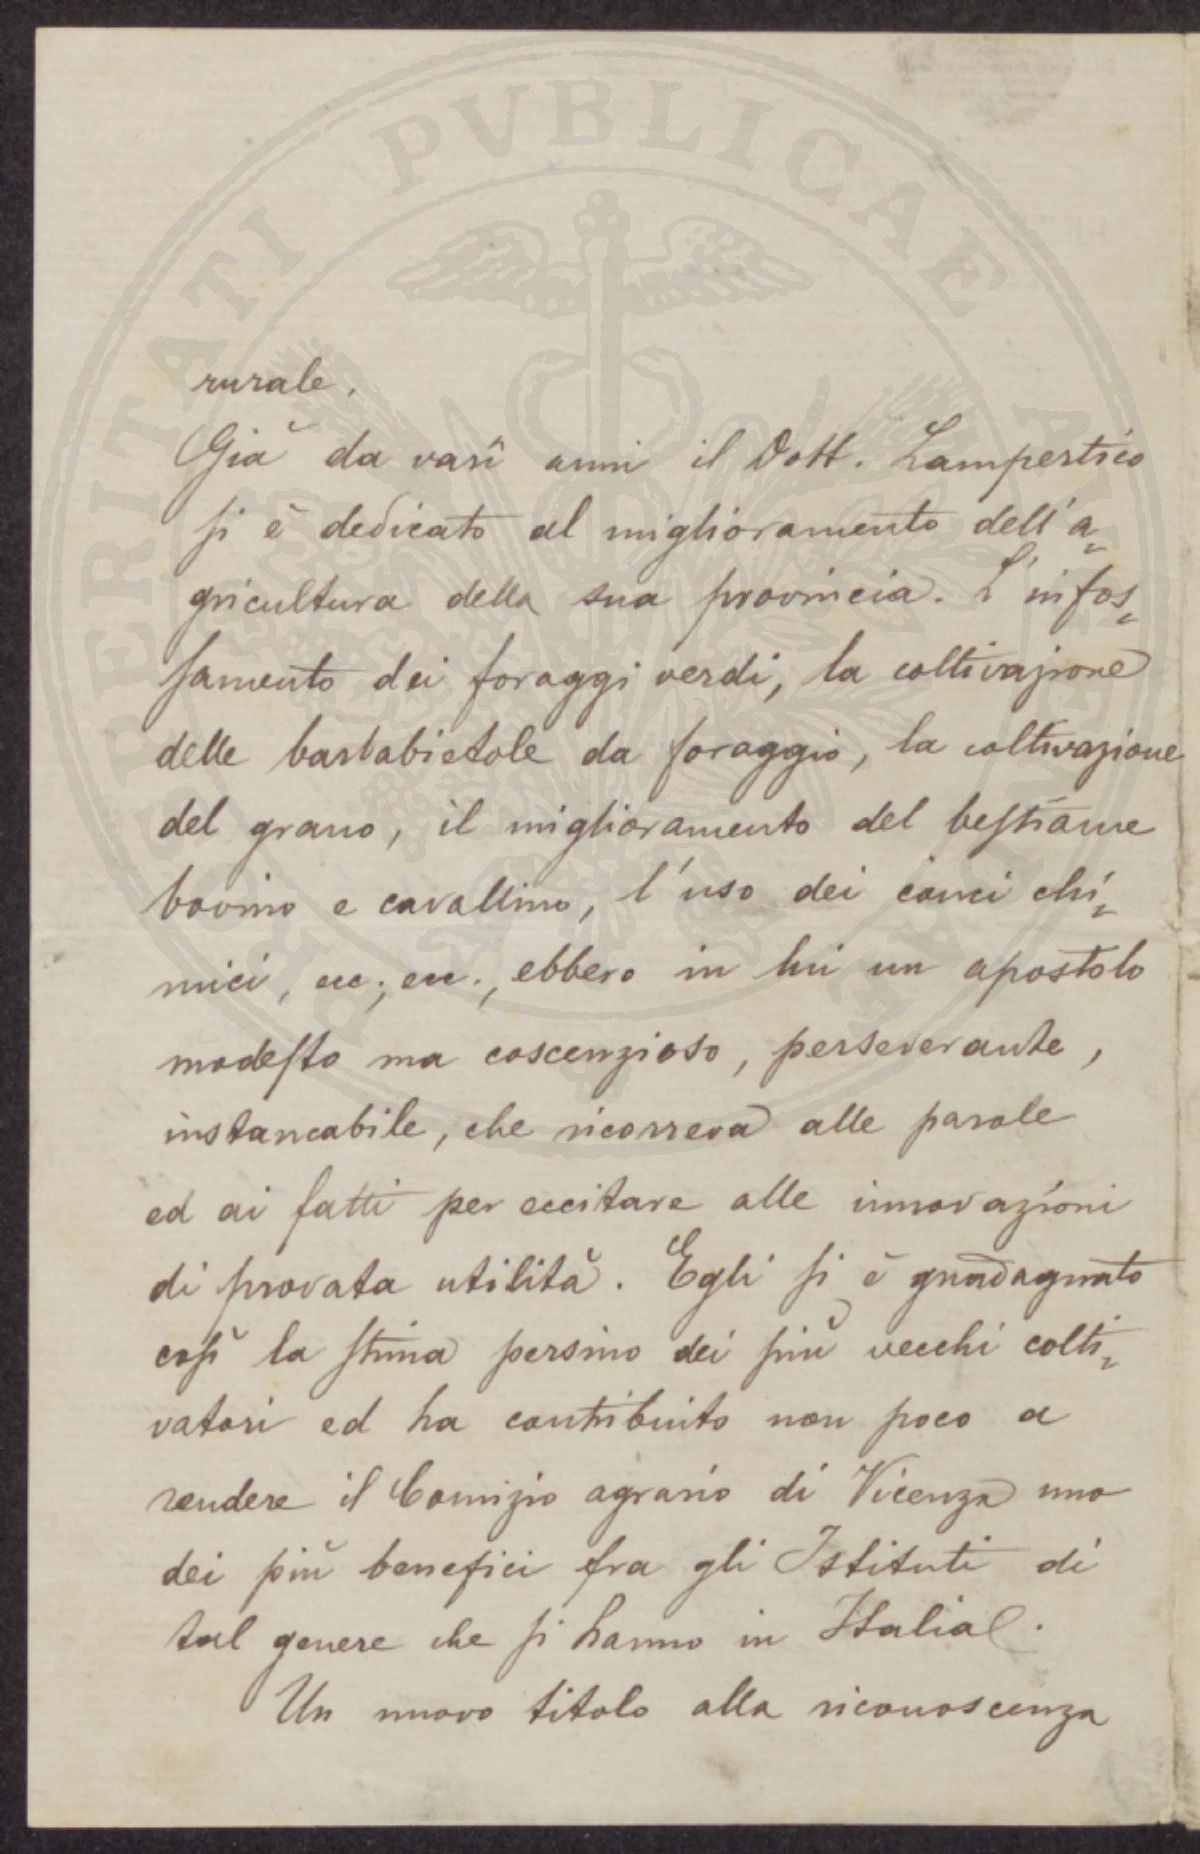 PROSPERITATI PVBLICAE AVGENDAE
rurale.
Già da varî anni il Dott. Lampertico
si è dedicato al miglioramento dell'a=
gricultura della sua provincia. L'infos=
samento dei foraggi verdi, la coltivazione
delle barbabietole da foraggio, la coltivazione
del grano, il miglioramento del bestiame
bovino e cavallino, l'uso dei conci chi=
mici, ecc., ecc., ebbero in lui un apostolo
modesto ma coscenzioso, perseverante,
instancabile, che ricorreva alle parole
ed ai fatti per eccitare alle innovazioni
di provata utilità. Egli si è guadagnato
così la stima persino dei più vecchi colti=
vatori ed ha contribuito non poco a
rendere il Comizio agrario di Vicenza uno
dei più benefici fra gli Istituti di
tal genere che si hanno in Italia.
Un nuovo titolo alla riconoscenza